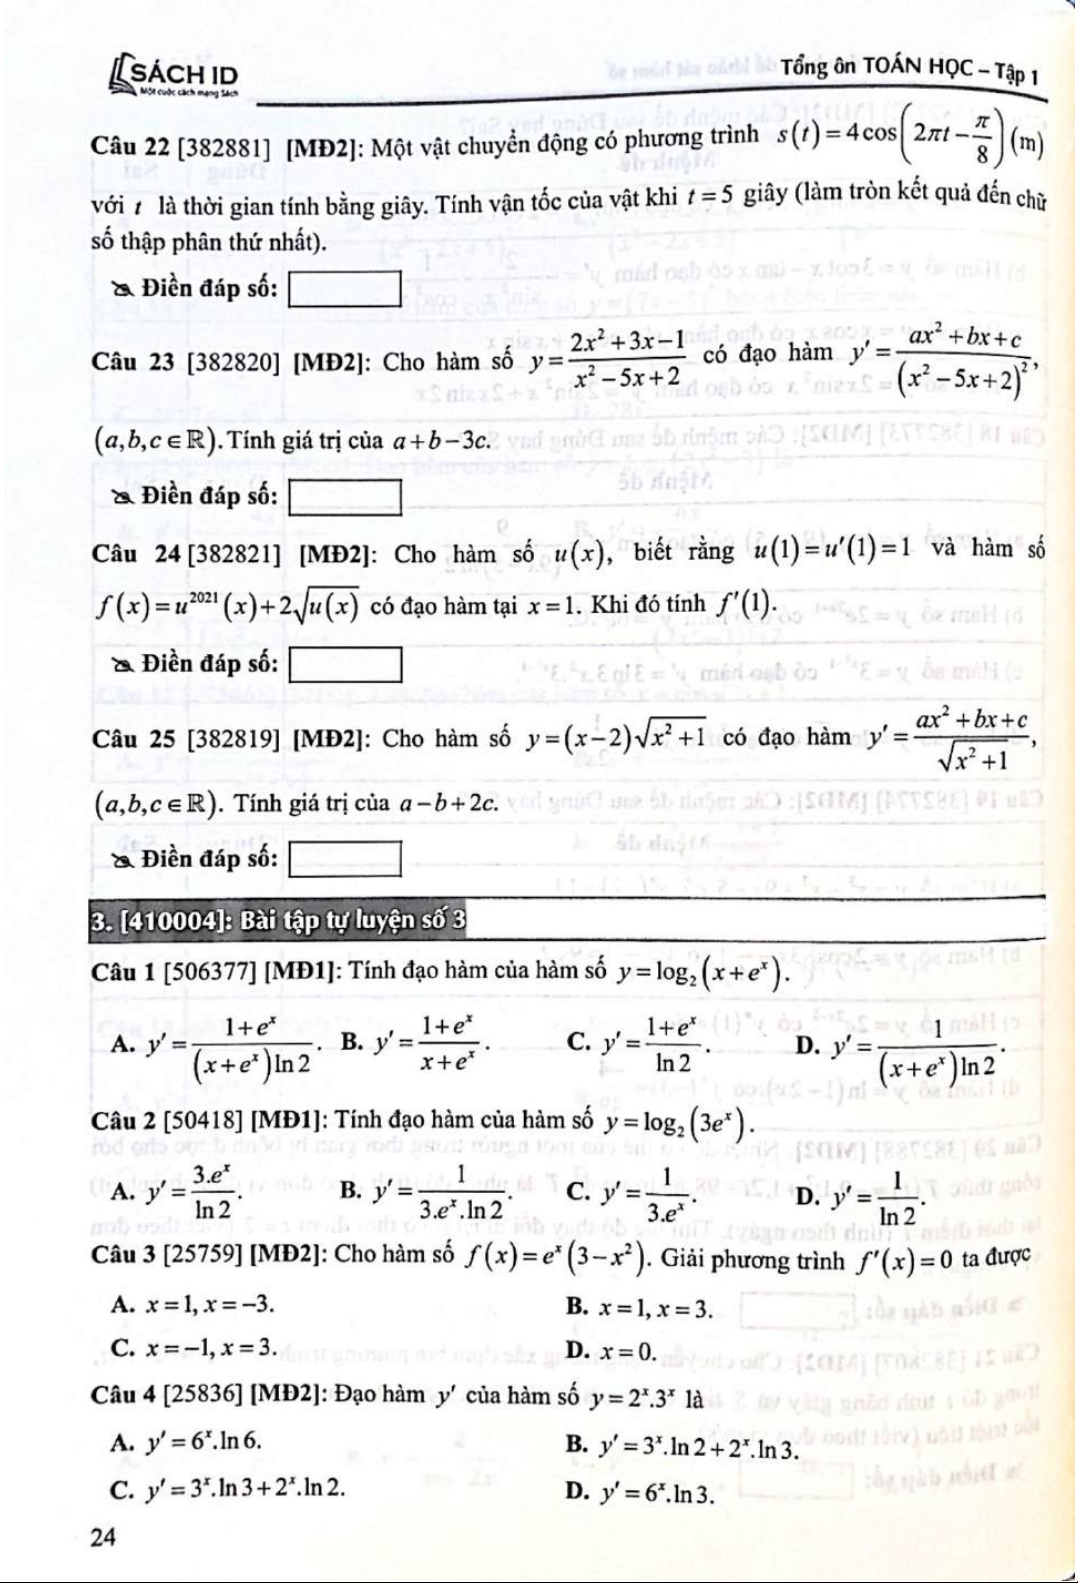 SÁCH ID
Một cuộc cách mạng Sách
Tổng ôn TOÁN HỌC – Tập 1
Câu 22 [382881] [MĐ2]: Một vật chuyển động có phương trình s(t) = 4cos(2πt − π/8) (m)
với t là thời gian tính bằng giây. Tính vận tốc của vật khi t = 5 giây (làm tròn kết quả đến chữ
số thập phân thứ nhất).
Điền đáp số:
Câu 23 [382820] [MĐ2]: Cho hàm số y = (2x² + 3x − 1)/(x² − 5x + 2) có đạo hàm y' = (ax² + bx + c)/(x² − 5x + 2)²,
(a,b,c ∈ ℝ). Tính giá trị của a + b − 3c.
Điền đáp số:
Câu 24 [382821] [MĐ2]: Cho hàm số u(x), biết rằng u(1) = u'(1) = 1 và hàm số
f(x) = u²⁰²¹(x) + 2√u(x) có đạo hàm tại x = 1. Khi đó tính f'(1).
Điền đáp số:
Câu 25 [382819] [MĐ2]: Cho hàm số y = (x − 2)√(x² + 1) có đạo hàm y' = (ax² + bx + c)/√(x² + 1),
(a,b,c ∈ ℝ). Tính giá trị của a − b + 2c.
Điền đáp số:
3. [410004]: Bài tập tự luyện số 3
Câu 1 [506377] [MĐ1]: Tính đạo hàm của hàm số y = log₂(x + eˣ).
A. y' = (1 + eˣ)/((x + eˣ)ln 2). B. y' = (1 + eˣ)/(x + eˣ). C. y' = (1 + eˣ)/ln 2. D. y' = 1/((x + eˣ)ln 2).
Câu 2 [50418] [MĐ1]: Tính đạo hàm của hàm số y = log₂(3eˣ).
A. y' = 3.eˣ/ln 2. B. y' = 1/(3.eˣ.ln 2). C. y' = 1/(3.eˣ). D. y' = 1/ln 2.
Câu 3 [25759] [MĐ2]: Cho hàm số f(x) = eˣ(3 − x²). Giải phương trình f'(x) = 0 ta được
A. x = 1, x = −3. B. x = 1, x = 3.
C. x = −1, x = 3. D. x = 0.
Câu 4 [25836] [MĐ2]: Đạo hàm y' của hàm số y = 2ˣ.3ˣ là
A. y' = 6ˣ.ln 6. B. y' = 3ˣ.ln 2 + 2ˣ.ln 3.
C. y' = 3ˣ.ln 3 + 2ˣ.ln 2. D. y' = 6ˣ.ln 3.
24